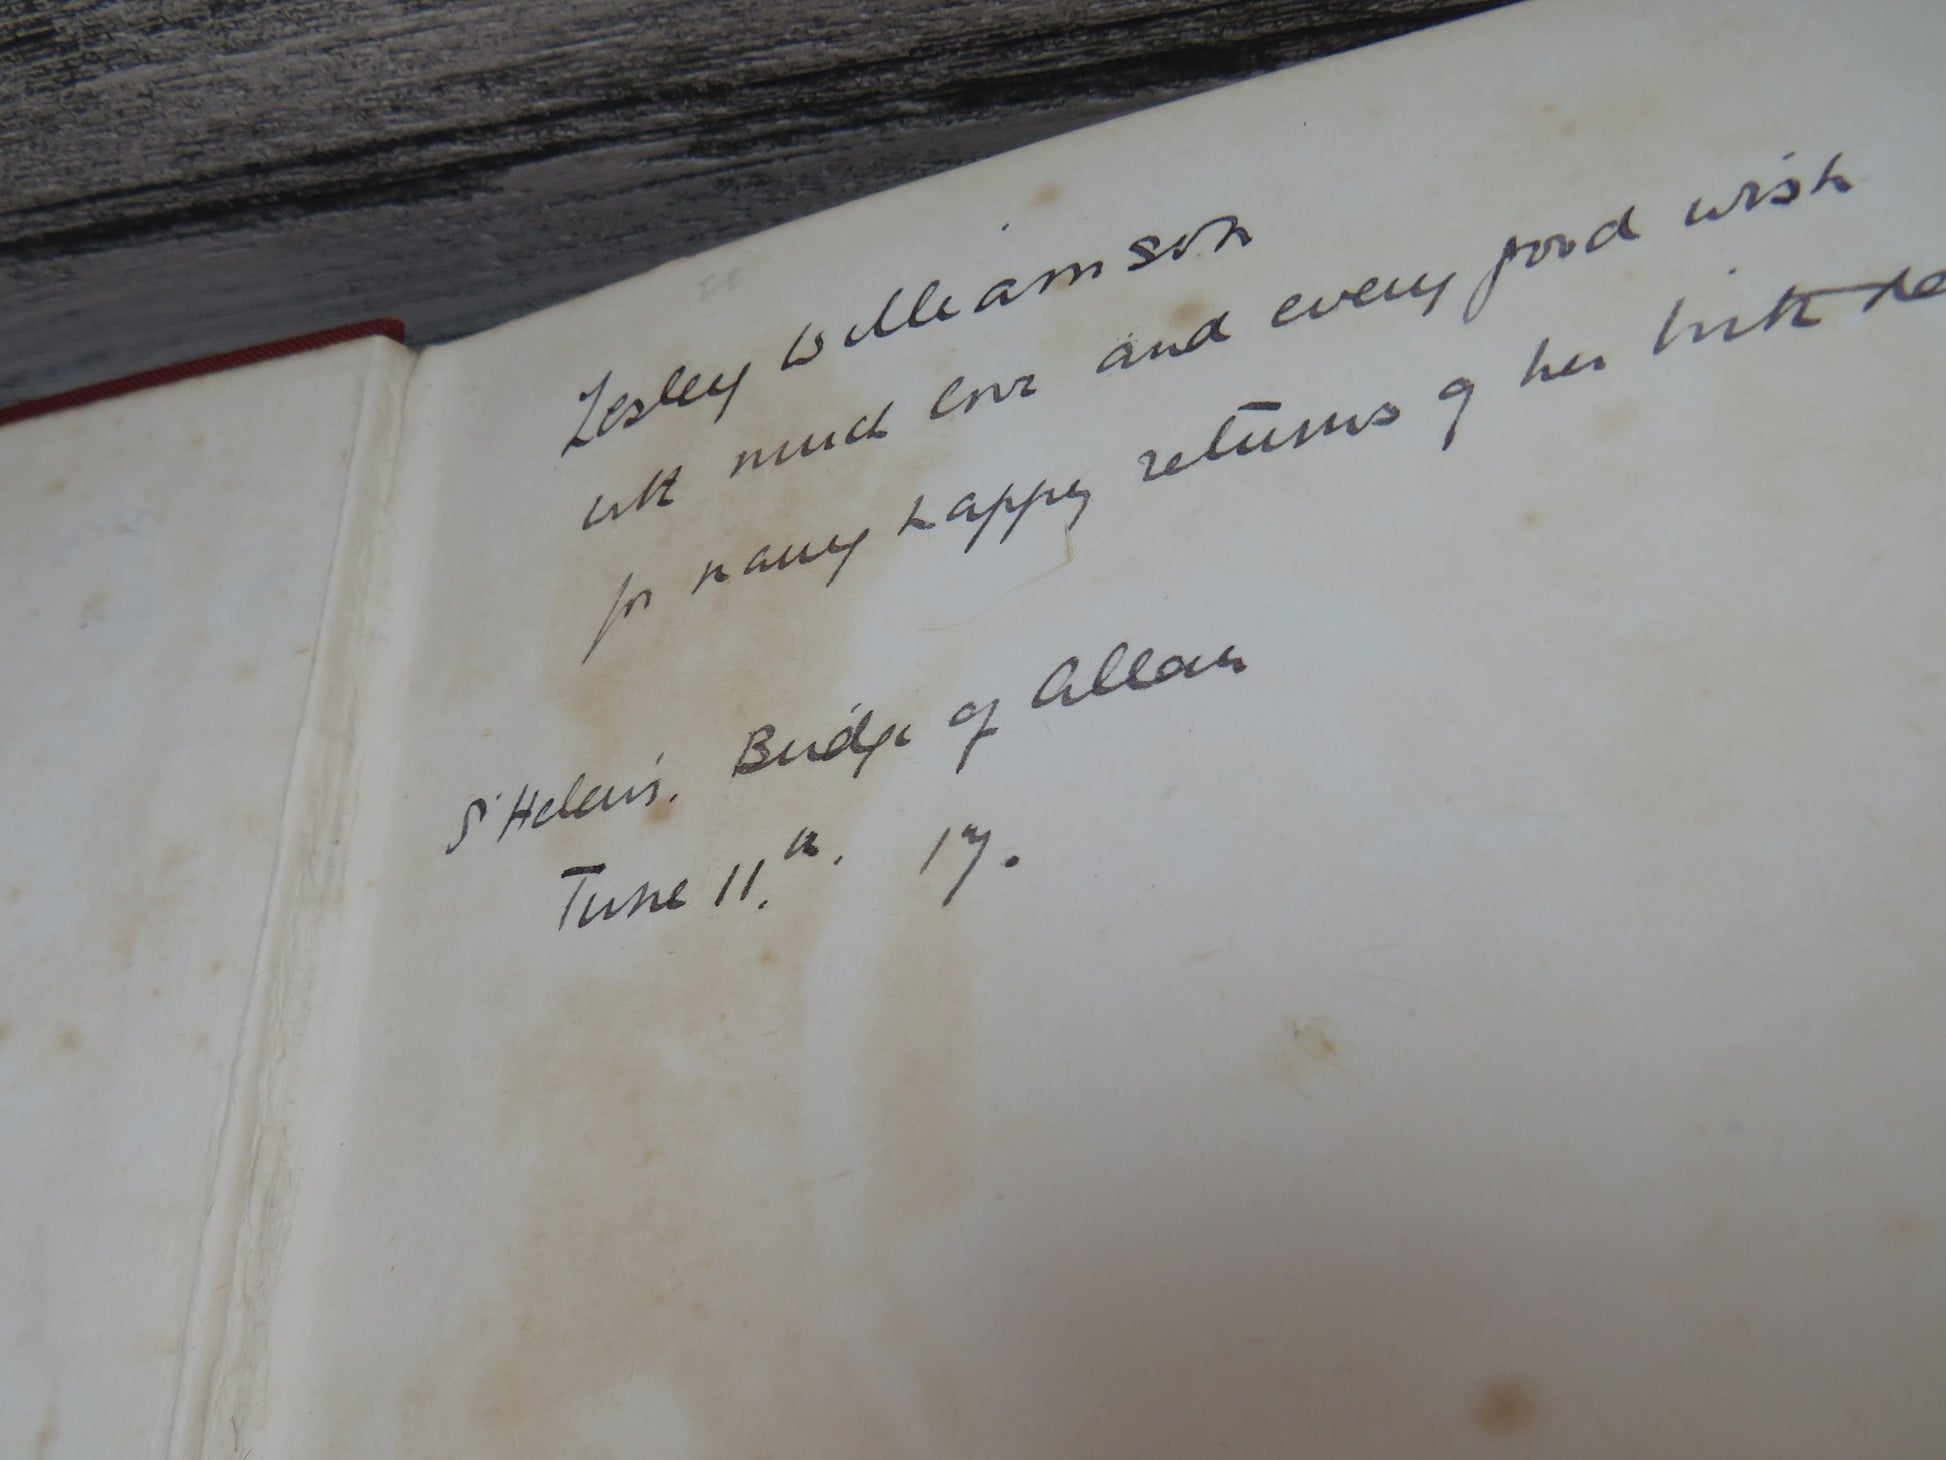 Lesley Williamson
with much love and every good wish
for many happy returns of her birthda
St Helen's. Bridge of Allan
June 11.th. 17.